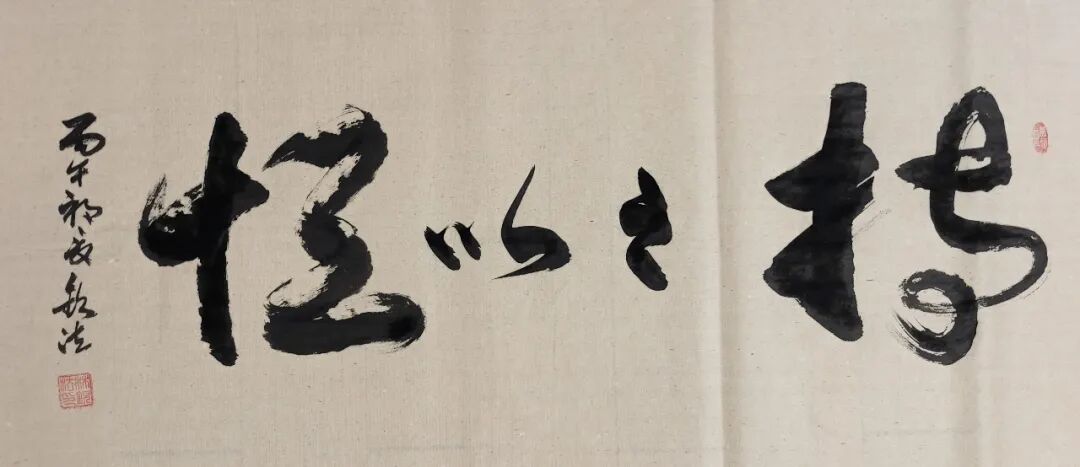 持之以恒
丙午初夏